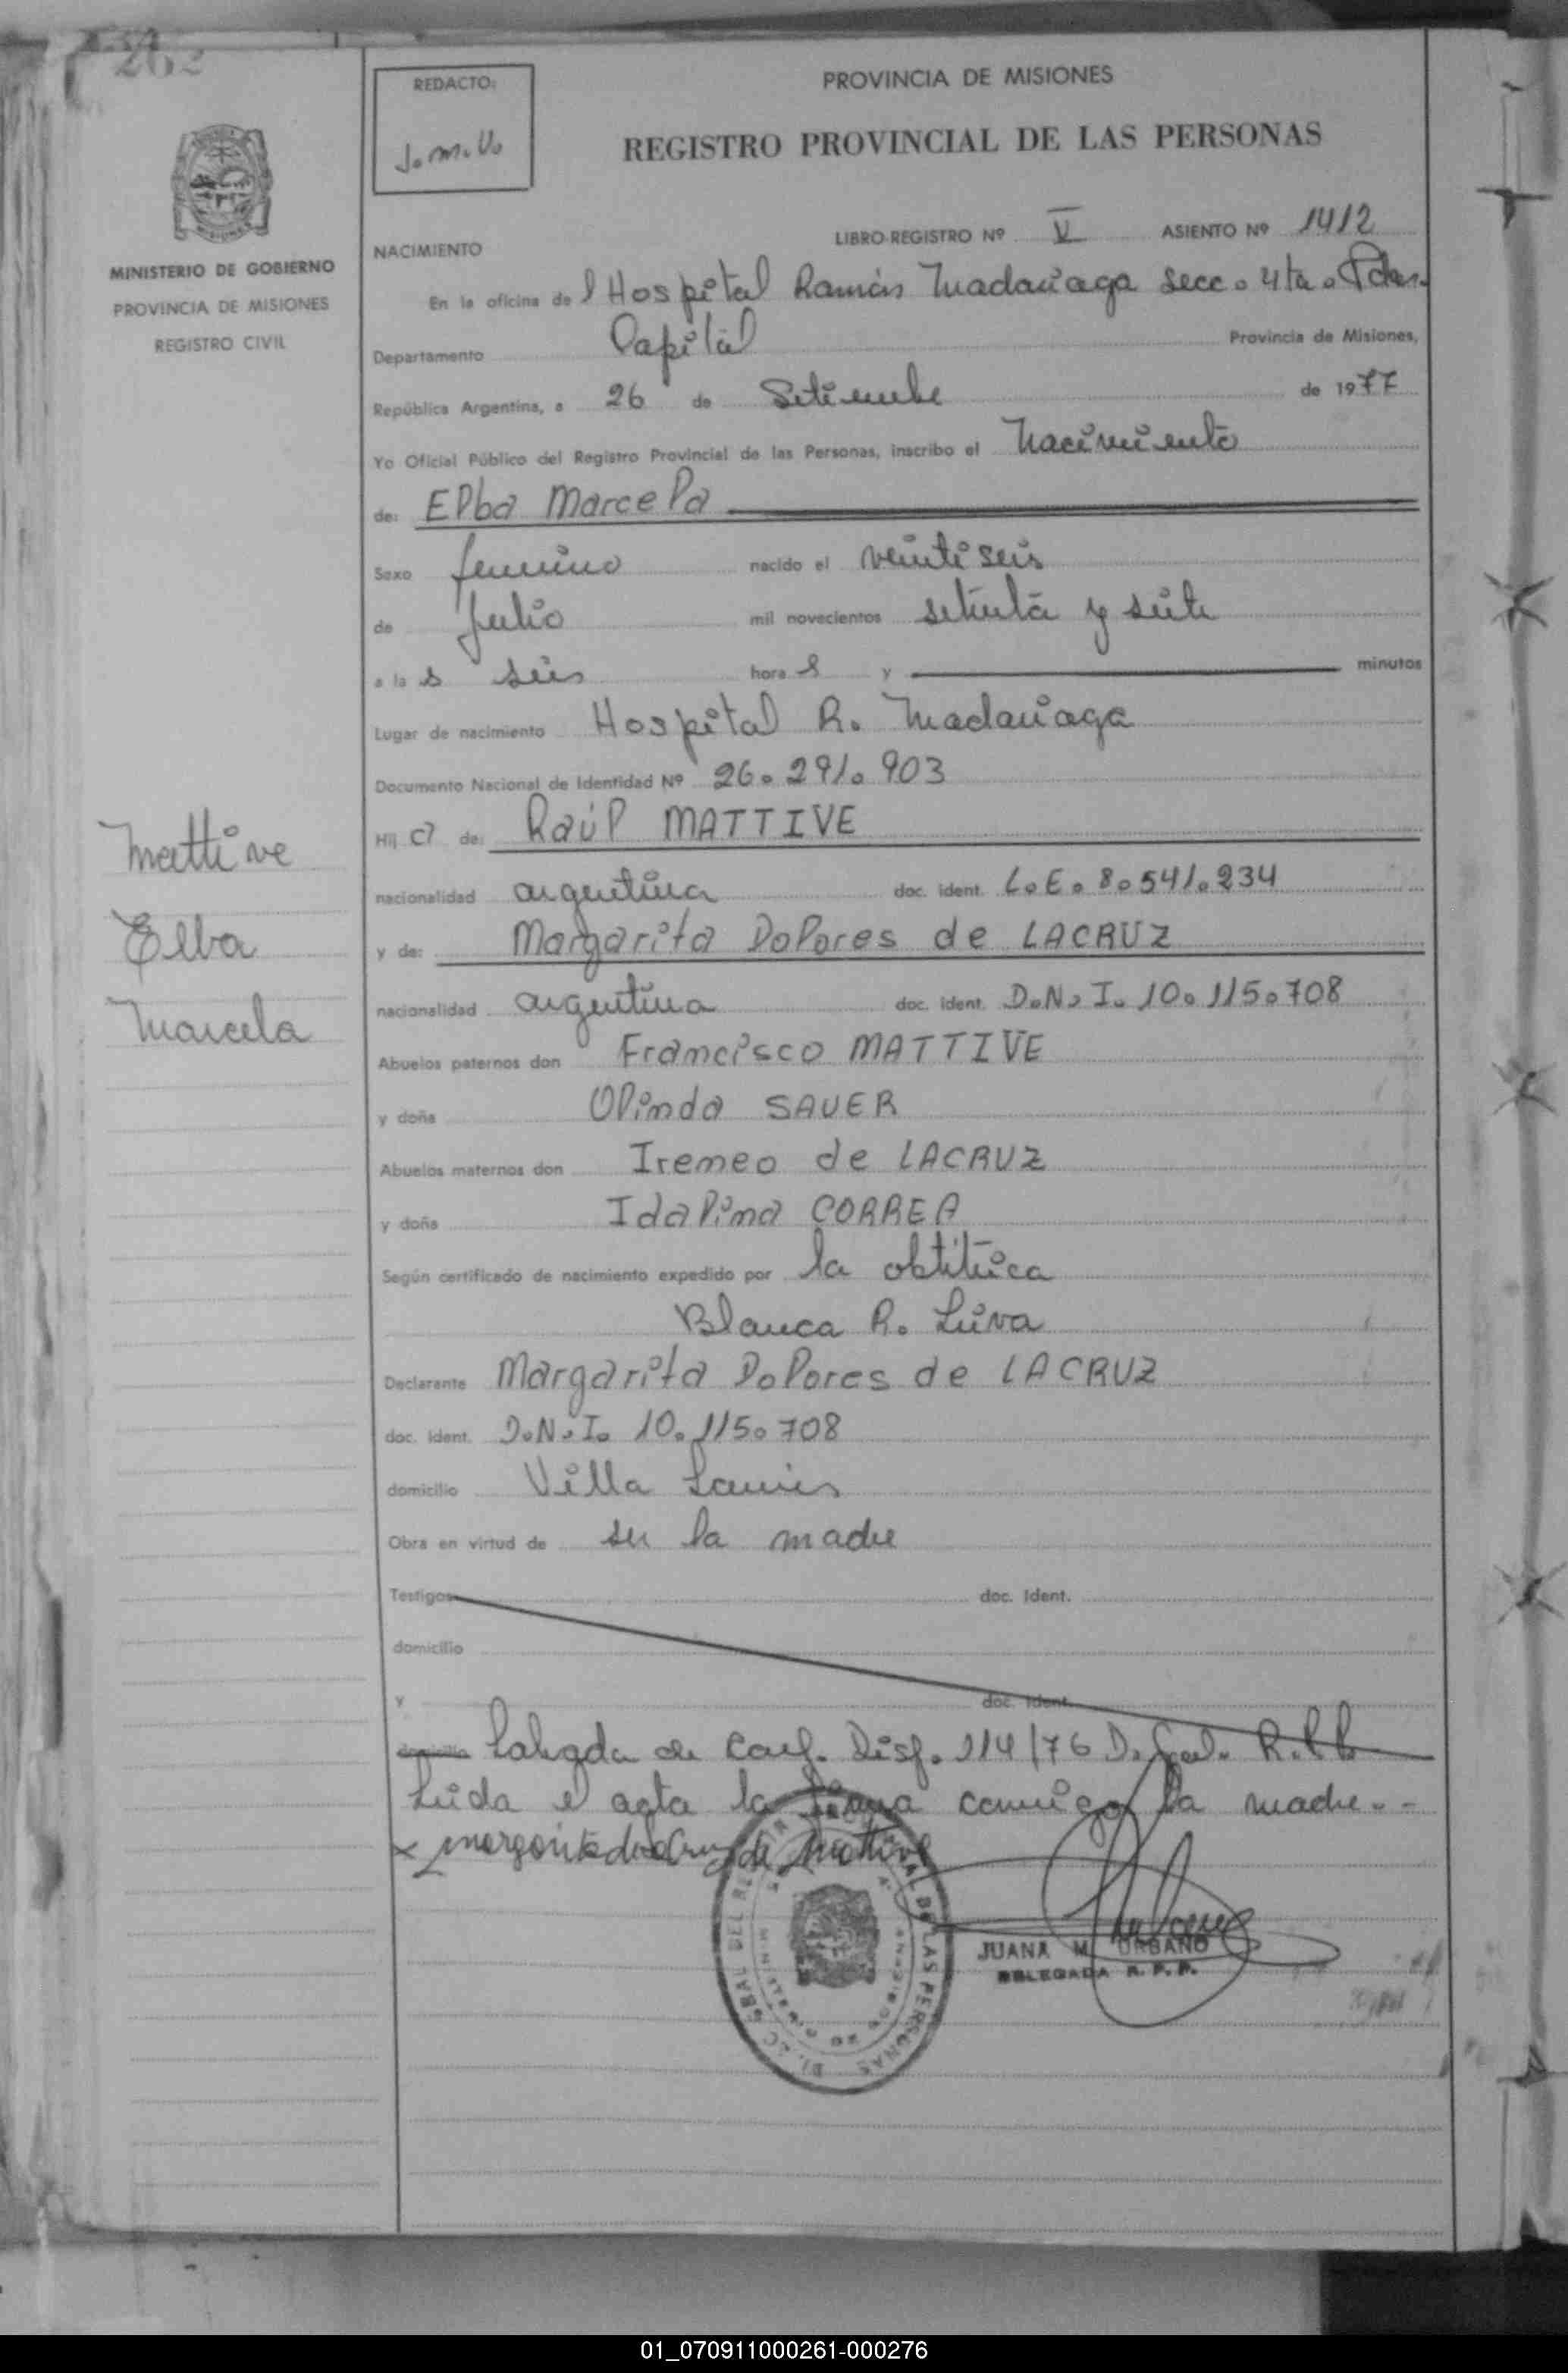 262
REDACTO:
J.M.U.
PROVINCIA DE MISIONES
REGISTRO PROVINCIAL DE LAS PERSONAS
MINISTERIO DE GOBIERNO
PROVINCIA DE MISIONES
REGISTRO CIVIL
LIBRO-REGISTRO Nº V ASIENTO Nº 1412
NACIMIENTO
En la oficina del Hospital Ramón Madariaga Secc. 4ta. Pdas.
Departamento Capital Provincia de Misiones,
República Argentina, a 26 de Setiembre de 1977
Yo Oficial Público del Registro Provincial de las Personas, inscribo el Nacimiento
de: Elba Marcela
Sexo femenino nacido el veintiseis
de Julio mil novecientos setenta y siete
a las seis horas y minutos
Lugar de nacimiento Hospital R. Madariaga
Documento Nacional de Identidad Nº 26.291.903
Hija de: Raúl MATTIVE
nacionalidad argentina doc. ident. L.E. 8.541.234
y de: Margarita Dolores de LACRUZ
nacionalidad argentina doc. ident. D.N.I. 10.115.708
Abuelos paternos don Francisco MATTIVE
y doña Olinda SAUER
Abuelos maternos don Ireneo de LACRUZ
y doña Idalina CORREA
Según certificado de nacimiento expedido por la obtetrica
Blanca R. Leiva
Declarante Margarita Dolores de LACRUZ
doc. ident. D.N.I. 10.115.708
domicilio Villa Lanus
Obra en virtud de ser la madre
Testigos doc. ident.
domicilio
y doc. ident.
domicilio Labrada de Conf. Disp. 114/76 D. Gral. R.P.P.
Leida el acta la firma conmigo la madre.--
x margarita de la Cruz de Mattive
JUANA M. URBANO
DELEGADA R. P. P.
Mattive
Elba
Marcela
01_070911000261-000276